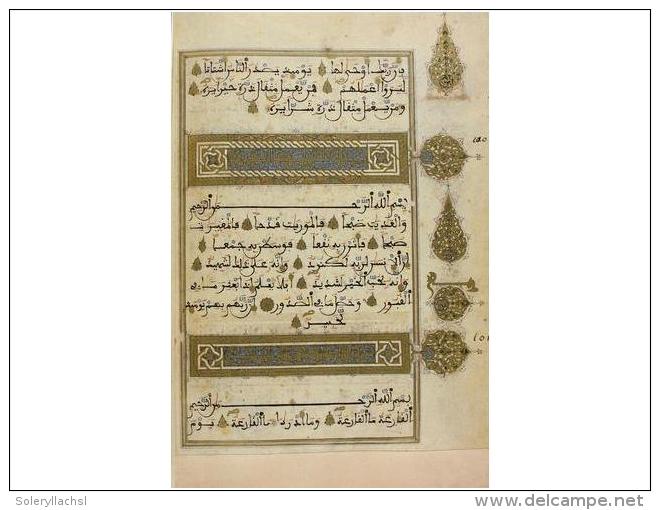 بأن ربك أوحى لها يومئذ يصدر الناس أشتاتا
ليروا أعملهم فمن يعمل مثقال ذرة خيرا يره
ومن يعمل مثقال ذرة شرا يره
بسم الله الرحمن الرحيم
والعديت ضبحا فالموريت قدحا فالمغيرت
صبحا فأثرن به نقعا فوسطن به جمعا
إن الإنسن لربه لكنود وإنه على ذلك لشهيد
وإنه لحب الخير لشديد أفلا يعلم إذا بعثر ما في
القبور وحصل ما في الصدور إن ربهم بهم يومئذ
لخبير
بسم الله الرحمن الرحيم
القارعة ما القارعة وما أدراك ما القارعة يوم
Soleryllachsl
www.delcampe.net